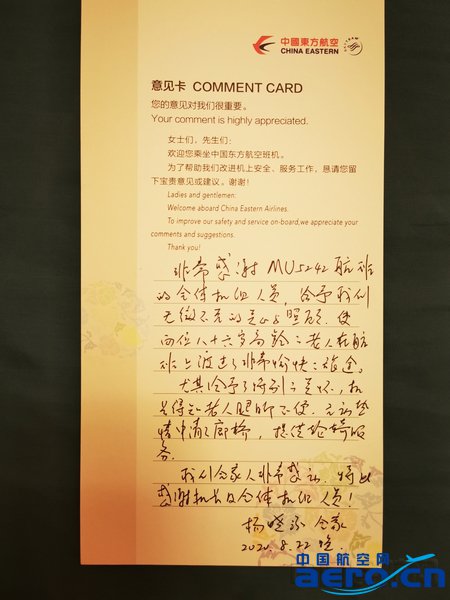 中國東方航空
CHINA EASTERN
意见卡 COMMENT CARD
您的意见对我们很重要。
Your comment is highly appreciated.
女士们，先生们：
欢迎您乘坐中国东方航空班机。
为了帮助我们改进机上安全、服务工作，恳请您留
下宝贵意见或建议。谢谢！
Ladies and gentlemen:
Welcome aboard China Eastern Airlines.
To improve our safety and service on-board,we appreciate your
comments and suggestions.
Thank you!
非常感谢 MU5242航班
的全体机组人员，给予我们
无微不至的关心与照顾，使
两位八十六岁高龄之老人在航
班上渡过了非常愉快之旅途。
尤其给予了特别之关怀，机
长得知老人腿脚不便，
情申请了廊桥，提供轮椅服
务。
我们全家人非常感动，特此
感谢机长及全体机组人员！
杨 全家
2020.8.22 晚.
中国航空网
aero.cn